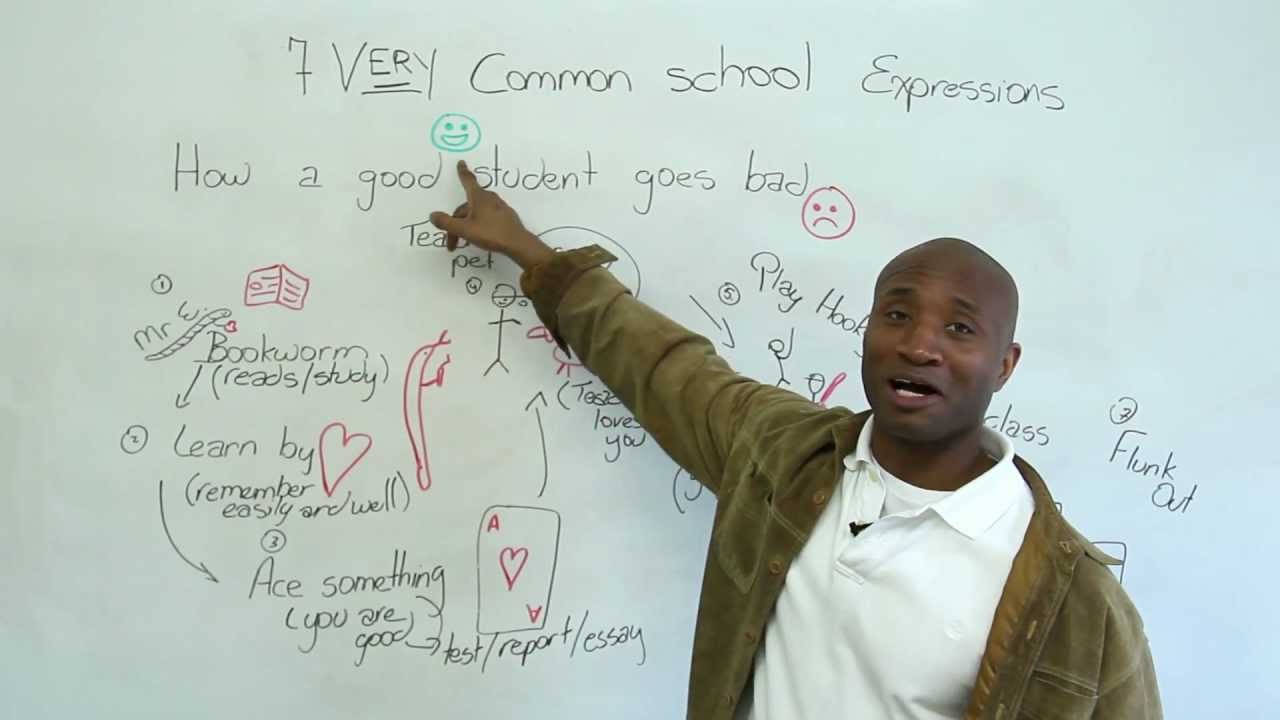 7 VERY Common school Expressions
How a good student goes bad
pet
4
1
Mr W
Bookworm
(reads/study)
2
Learn by
(remember
easily and well)
3
Ace something
(you are
good
test/report/essay
A
A
loves
you
5
Play
class
7
Flunk
Out